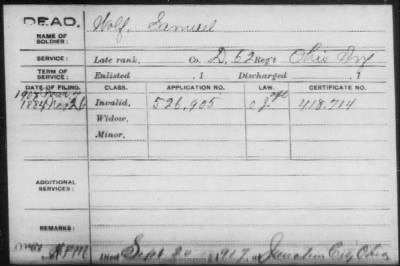 DEAD.
NAME OF SOLDIER: Wolf, Samuel
SERVICE: Late rank, Co. D, 62 Reg't Ohio Inf
TERM OF SERVICE: Enlisted , 1 Discharged , 1
DATE OF FILING. CLASS. APPLICATION NO. LAW. CERTIFICATE NO.
1907
1884 Nov 26 Invalid, 526,905 418,714
Widow,
Minor,
ADDITIONAL SERVICES:
REMARKS:
Died Sept 20 1917, at Junction City, Ohio